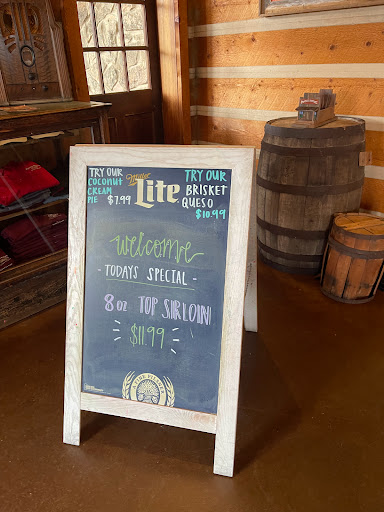 TRY OUR
COCONUT
CREAM
PIE $7.99
Miller
Lite
TRY OUR
BRISKET
QUESO
$10.99
welcome
- TODAYS SPECIAL -
8 oz TOP SIRLOIN
$11.99